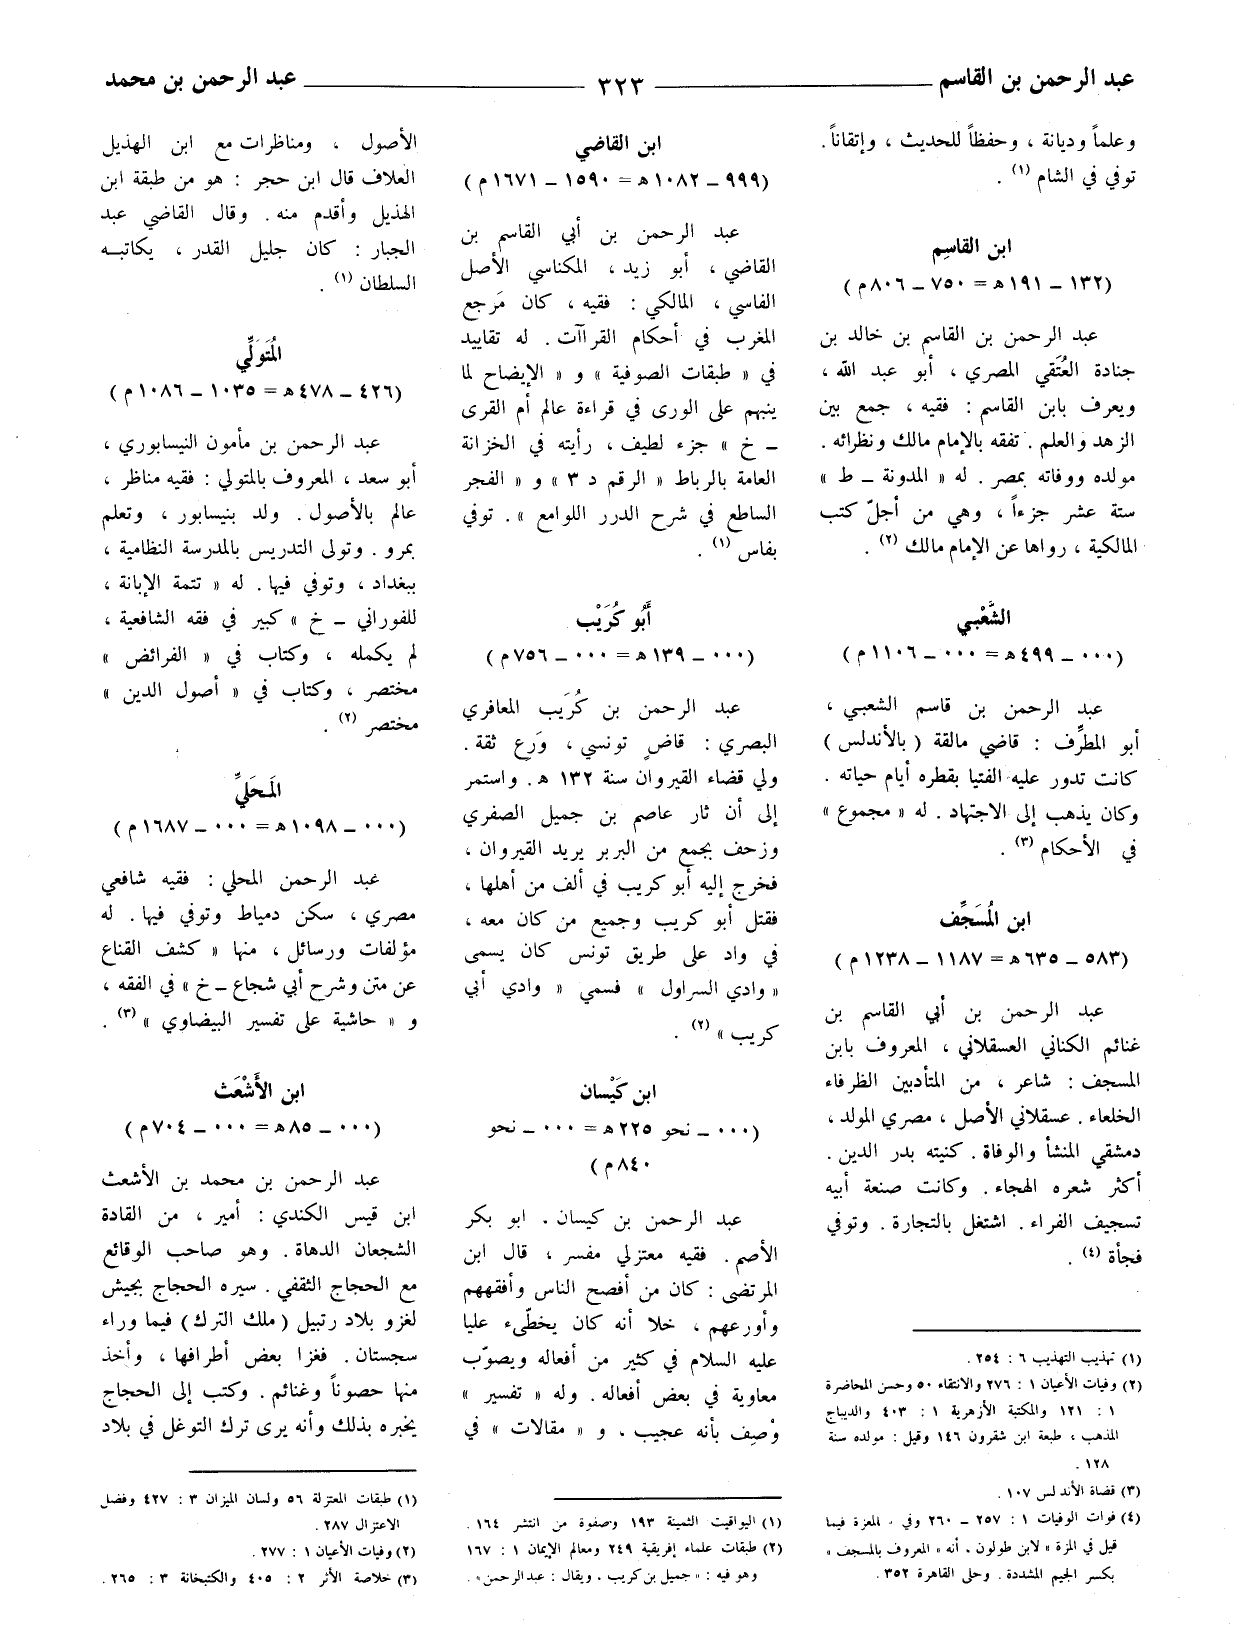 عبد الرحمن بن القاسم
٣٢٣
عبد الرحمن بن محمد
وعلماً وديانة ، وحفظاً للحديث ، وإتقاناً .
توفي في الشام (١) .
ابن القاسِم
(١٣٢ – ١٩١ ه = ٧٥٠ – ٨٠٦ م)
عبد الرحمن بن القاسم بن خالد بن
جنادة العُتَقي المصري ، أبو عبد الله ،
ويعرف بابن القاسم : فقيه ، جمع بين
الزهد والعلم . تفقه بالإمام مالك ونظرائه .
مولده ووفاته بمصر . له « المدونة – ط »
ستة عشر جزءاً ، وهي من أجلّ كتب
المالكية ، رواها عن الإمام مالك (٢) .
الشَّعْبي
(٠٠٠ – ٤٩٩ ه = ٠٠٠ – ١١٠٦ م)
عبد الرحمن بن قاسم الشعبي ،
أبو المطرِّف : قاضي مالقة (بالأندلس)
كانت تدور عليه الفتيا بقطره أيام حياته .
وكان يذهب إلى الاجتهاد . له « مجموع »
في الأحكام (٣) .
ابن المُسَجِّف
(٥٨٣ – ٦٣٥ ه = ١١٨٧ – ١٢٣٨ م)
عبد الرحمن بن أبي القاسم بن
غنائم الكناني العسقلاني ، المعروف بابن
المسجف : شاعر ، من المتأدبين الظرفاء
الخلعاء . عسقلاني الأصل ، مصري المولد ،
دمشقي المنشأ والوفاة . كنيته بدر الدين .
أكثر شعره الهجاء . وكانت صنعة أبيه
تسجيف الفراء . اشتغل بالتجارة . وتوفي
فجأة (٤) .
(١) تهذيب التهذيب ٦ : ٢٥٤ .
(٢) وفيات الأعيان ١ : ٢٧٦ والانتقاء ٥٠ وحسن المحاضرة
١ : ١٢١ والمكتبة الأزهرية ١ : ٤٠٣ والديباج
المذهب ، طبعة ابن شقرون ١٤٦ وقيل : مولده سنة
١٢٨ .
(٣) قضاة الأندلس ١٠٧ .
(٤) فوات الوفيات ١ : ٢٥٧ – ٢٦٠ وفي « المعزة فيما
قيل في المزة » لابن طولون ، أنه « المعروف بالمسجف »
بكسر الجيم المشددة . وحلى القاهرة ٣٥٢ .
ابن القاضي
(٩٩٩ – ١٠٨٢ ه = ١٥٩٠ – ١٦٧١ م)
عبد الرحمن بن أبي القاسم بن
القاضي ، أبو زيد ، المكناسي الأصل
الفاسي ، المالكي : فقيه ، كان مَرجع
المغرب في أحكام القراآت . له تقاييد
في « طبقات الصوفية » و « الإيضاح لما
ينبهم على الورى في قراءة عالم أم القرى
– خ » جزء لطيف ، رأيته في الخزانة
العامة بالرباط « الرقم د ٣ » و « الفجر
الساطع في شرح الدرر اللوامع » . توفي
بفاس (١) .
أَبُو كُرَيْب
(٠٠٠ – ١٣٩ ه = ٠٠٠ – ٧٥٦ م)
عبد الرحمن بن كُرَيب المعافري
البصري : قاضٍ تونسي ، وَرع ثقة .
ولي قضاء القيروان سنة ١٣٢ ه . واستمر
إلى أن ثار عاصم بن جميل الصفري
وزحف بجمع من البربر يريد القيروان ،
فخرج إليه أبو كريب في ألف من أهلها ،
فقتل أبو كريب وجميع من كان معه ،
في واد على طريق تونس كان يسمى
« وادي السراول » فسمي « وادي أبي
كريب » (٢) .
ابن كَيْسان
(٠٠٠ – نحو ٢٢٥ ه = ٠٠٠ – نحو
٨٤٠ م)
عبد الرحمن بن كيسان . ابو بكر
الأصم . فقيه معتزلي مفسر ، قال ابن
المرتضى : كان من أفصح الناس وأفقههم
وأورعهم ، خلا أنه كان يخطّىء عليا
عليه السلام في كثير من أفعاله ويصوّب
معاوية في بعض أفعاله . وله « تفسير »
وُصِف بأنه عجيب . و « مقالات » في
(١) اليواقيت الثمينة ١٩٣ وصفوة من انتشر ١٦٤ .
(٢) طبقات علماء إفريقية ٢٤٩ ومعالم الإيمان ١ : ١٦٧
وهو فيه : « جميل بن كريب ، ويقال : عبد الرحمن » .
الأصول ، ومناظرات مع ابن الهذيل
العلاف قال ابن حجر : هو من طبقة ابن
الهذيل وأقدم منه . وقال القاضي عبد
الجبار : كان جليل القدر ، يكاتبه
السلطان (١) .
المُتَوَلِّي
(٤٢٦ – ٤٧٨ ه = ١٠٣٥ – ١٠٨٦ م)
عبد الرحمن بن مأمون النيسابوري ،
أبو سعد ، المعروف بالمتولي : فقيه مناظر ،
عالم بالأصول . ولد بنيسابور ، وتعلم
بمرو . وتولى التدريس بالمدرسة النظامية ،
ببغداد ، وتوفي فيها . له « تتمة الإبانة ،
للفوراني – خ » كبير في فقه الشافعية ،
لم يكمله ، وكتاب في « الفرائض »
مختصر ، وكتاب في « أصول الدين »
مختصر (٢) .
المَحَلِّي
(٠٠٠ – ١٠٩٨ ه = ٠٠٠ – ١٦٨٧ م)
عبد الرحمن المحلي : فقيه شافعي
مصري ، سكن دمياط وتوفي فيها . له
مؤلفات ورسائل ، منها « كشف القناع
عن متن وشرح أبي شجاع – خ » في الفقه ،
و « حاشية على تفسير البيضاوي » (٣) .
ابن الأَشْعَث
(٠٠٠ – ٨٥ ه = ٠٠٠ – ٧٠٤ م)
عبد الرحمن بن محمد بن الأشعث
ابن قيس الكندي : أمير ، من القادة
الشجعان الدهاة . وهو صاحب الوقائع
مع الحجاج الثقفي . سيره الحجاج بجيش
لغزو بلاد رتبيل (ملك الترك) فيما وراء
سجستان . فغزا بعض أطرافها ، وأخذ
منها حصوناً وغنائم . وكتب إلى الحجاج
يخبره بذلك وأنه يرى ترك التوغل في بلاد
(١) طبقات المعتزلة ٥٦ ولسان الميزان ٣ : ٤٢٧ وفضل
الاعتزال ٢٨٧ .
(٢) وفيات الأعيان ١ : ٢٧٧ .
(٣) خلاصة الأثر ٢ : ٤٠٥ والكتبخانة ٣ : ٢٦٥ .